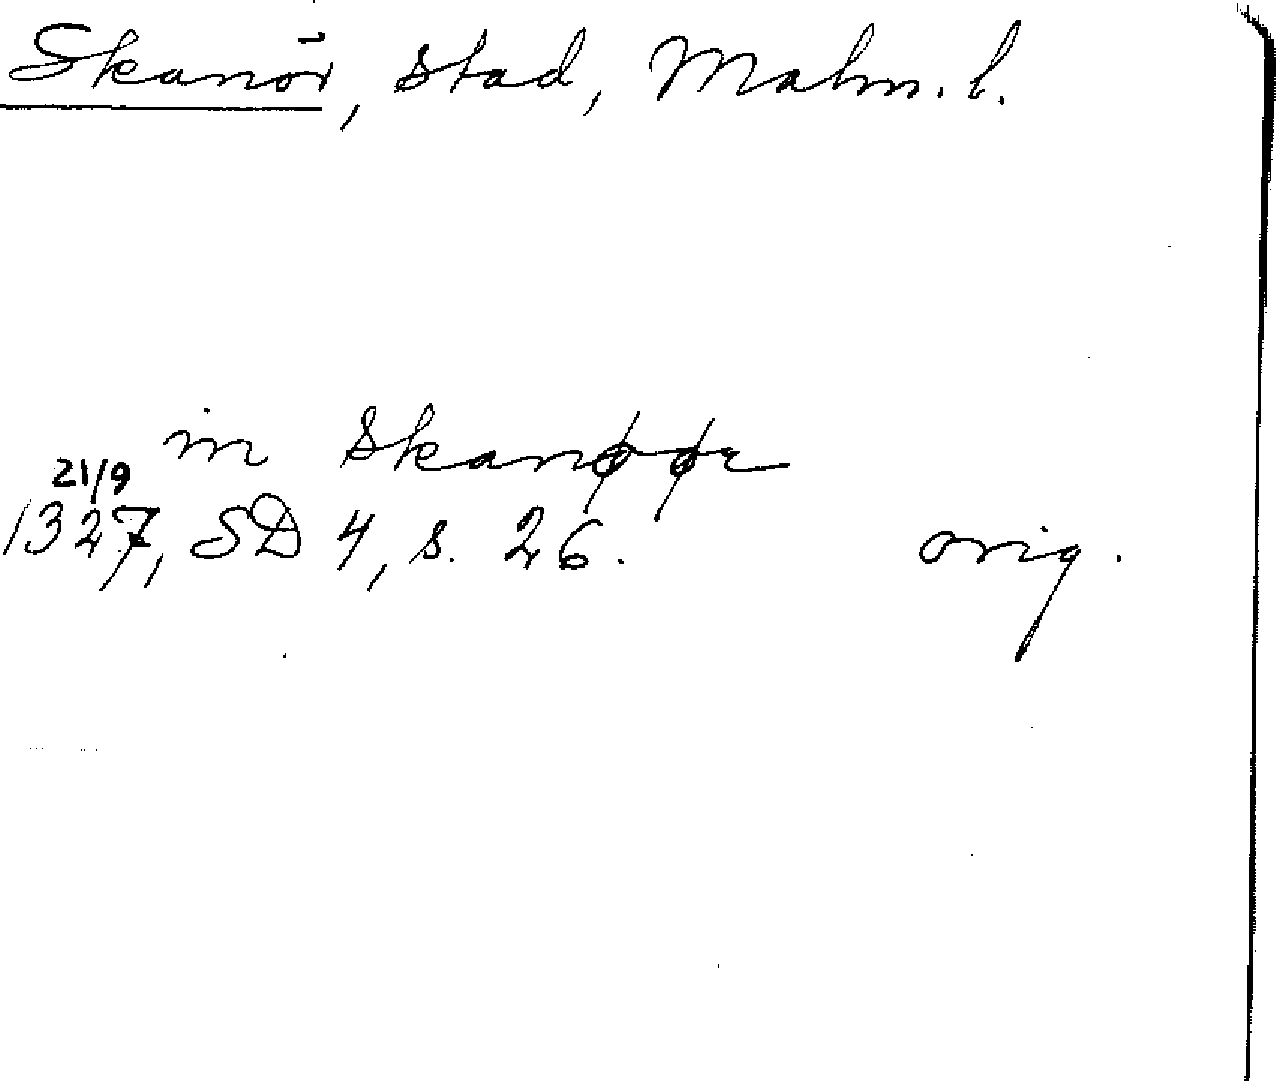 Skanör, stad, Malm. l.
in Skanøør
21/9
1327, SD 4, s. 26. orig.